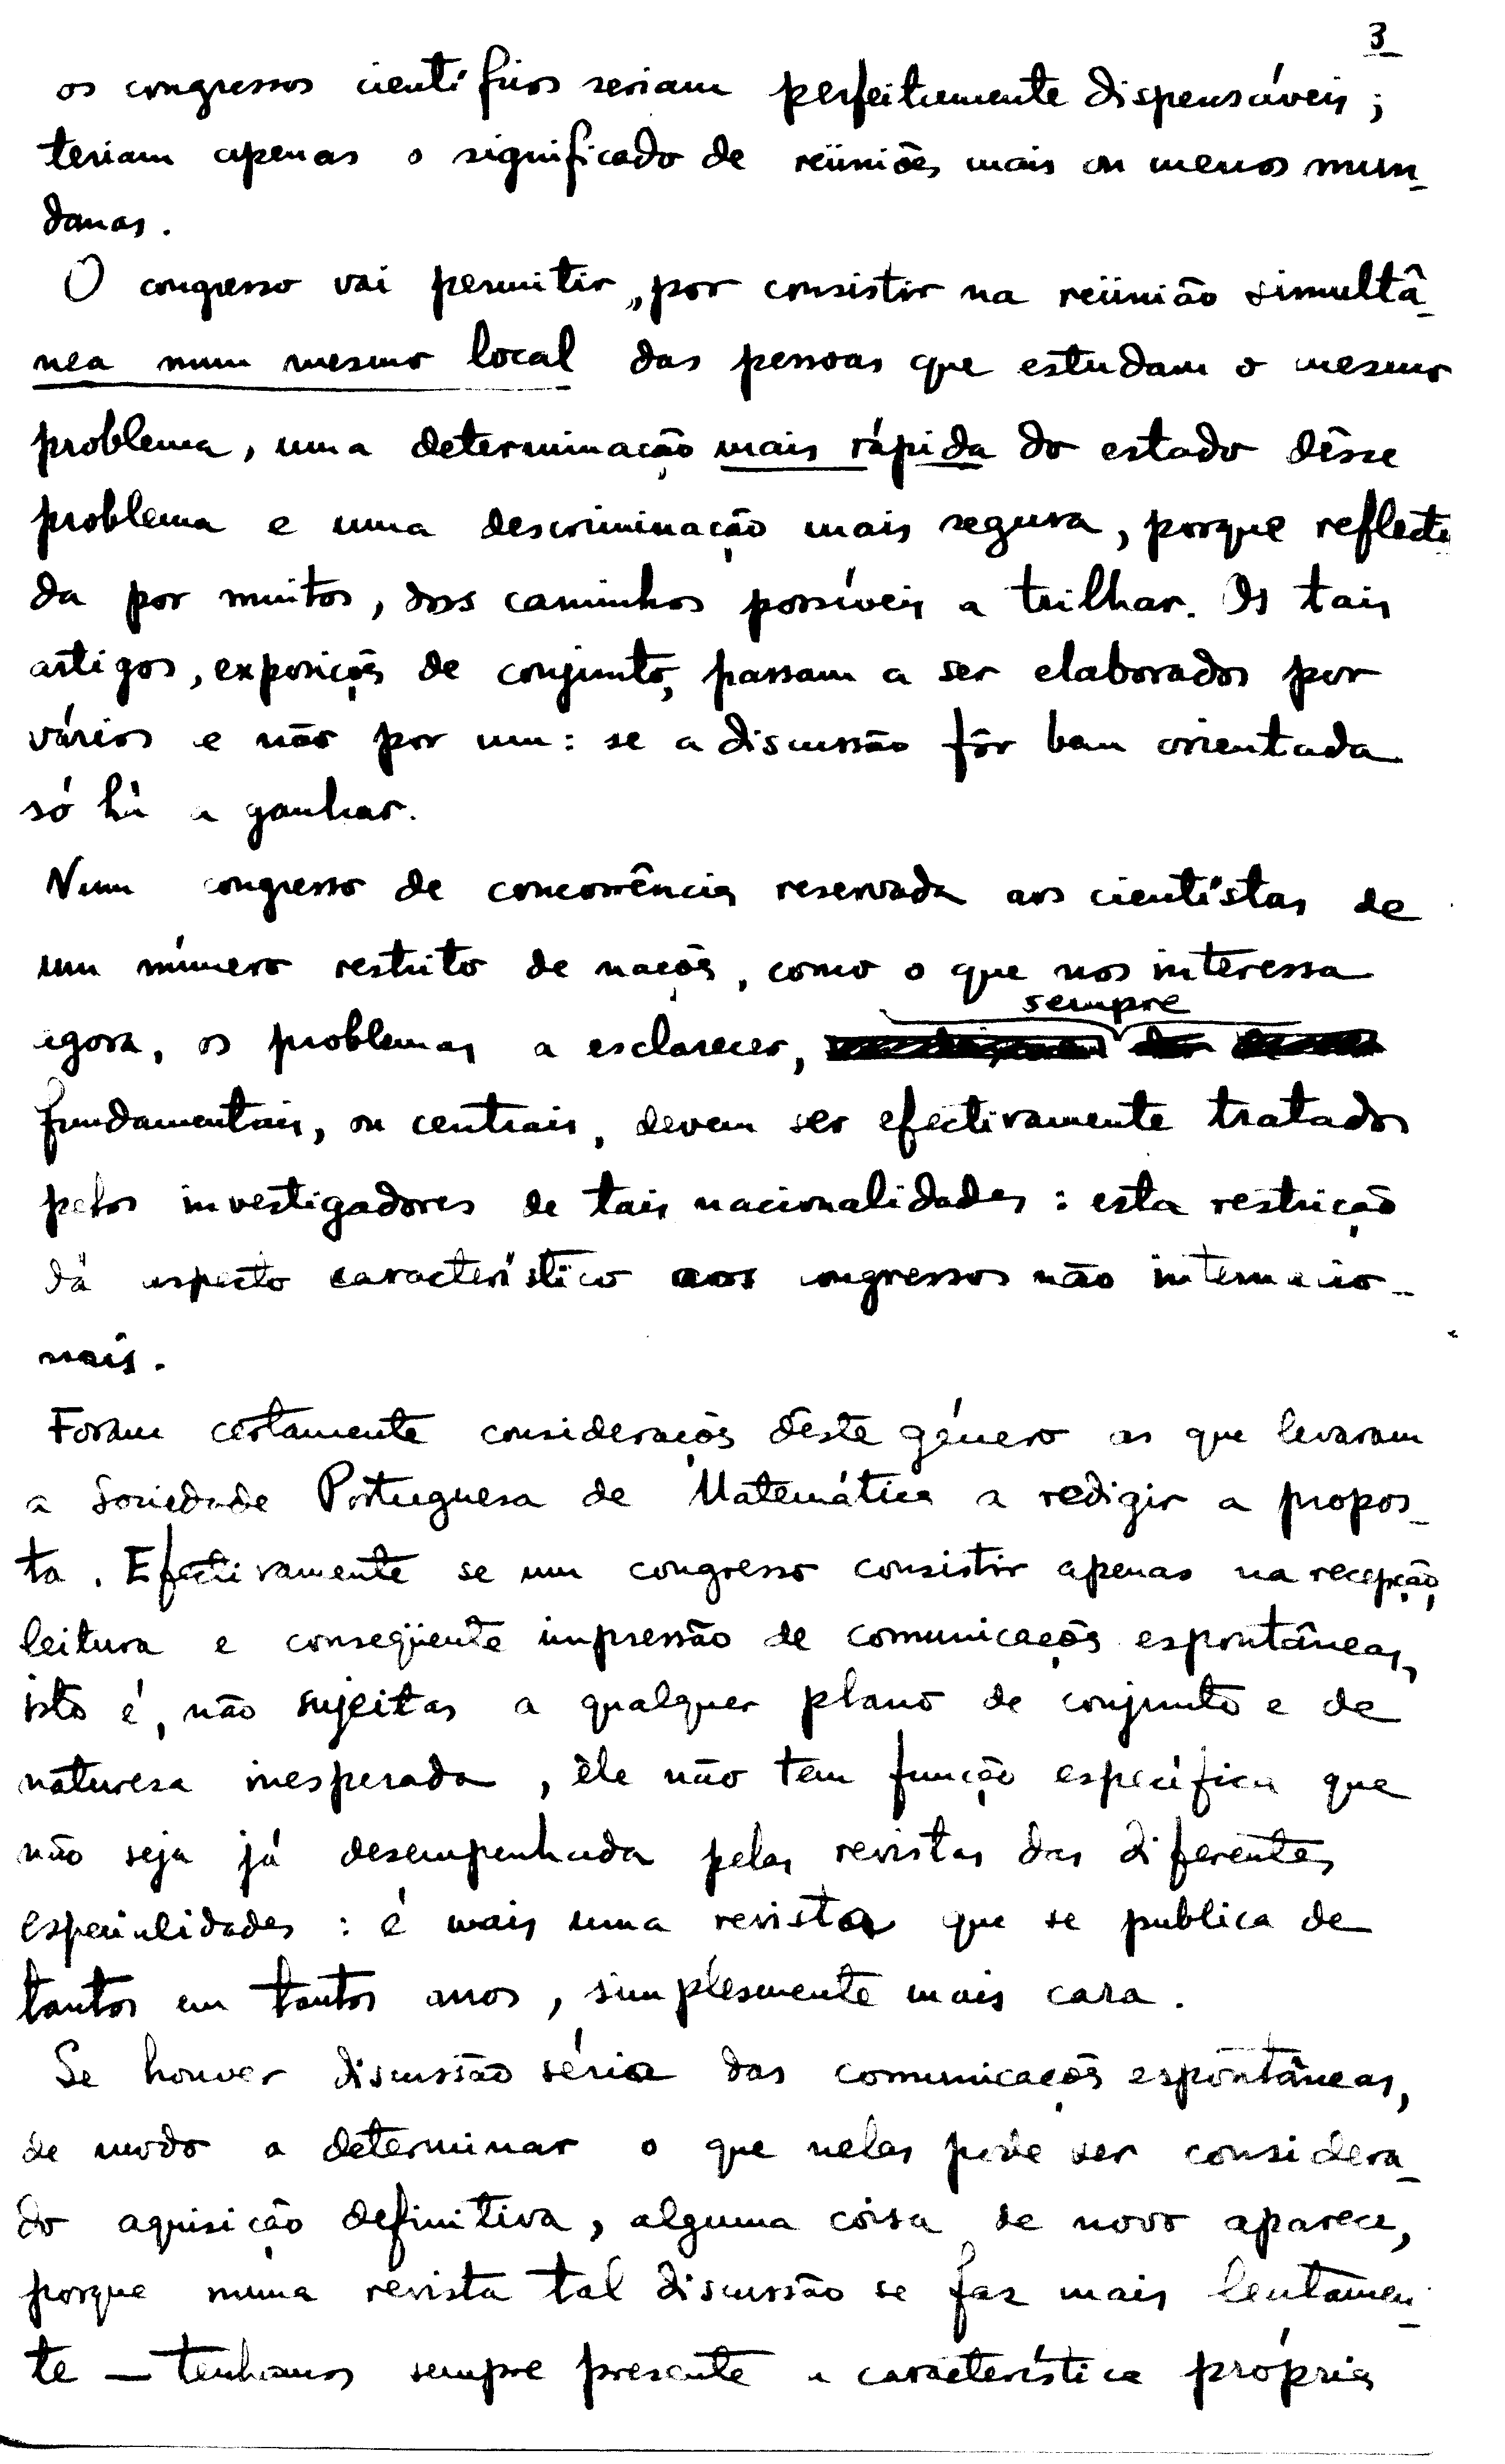 3
os congressos cientificos seriam perfeitamente dispensáveis;
teriam apenas o significado de reüniões mais ou menos mun-
danas.
O congresso vai permitir, por consistir na reünião simultâ-
nea num mesmo local das pessoas que estudam o mesmo
problema, uma determinação mais rápida do estado dêsse
problema e uma descriminação mais segura, porque reflecti
da por muitos, dos caminhos possíveis a trilhar. Os tais
artigos, exposições de conjunto, passam a ser elaborados por
vários e não por um: se a discussão fôr bem orientada
só há a ganhar.
Num congresso de concorrência reservada aos cientistas de
um número restrito de nações, como o que nos interessa
sempre
agora, os problemas a esclarecer,
fundamentais, ou centrais, devem ser efectivamente tratados
pelos investigadores de tais nacionalidades: esta restrição
dá aspecto característico aos congressos não internacio-
nais.
Foram certamente considerações dêste género as que levaram
a Sociedade Portuguesa de Matemática a redigir a propos-
ta. Efectivamente se um congresso consistir apenas na recepção,
leitura e conseqüente impressão de comunicações espontâneas,
isto é, não sujeitas a qualquer plano de conjunto e de
naturesa inesperada, êle não tem função específica que
não seja já desempenhada pelas revistas das diferentes
especialidades: é mais uma revista que se publica de
tantos em tantos anos, simplesmente mais cara.
Se houver discussão séria das comunicações espontâneas,
de modo a determinar o que nelas pode ser considera-
do aquisição definitiva, alguma coisa de novo aparece,
porque numa revista tal discussão se faz mais lentamen-
te — tenhamos sempre presente a característica própria